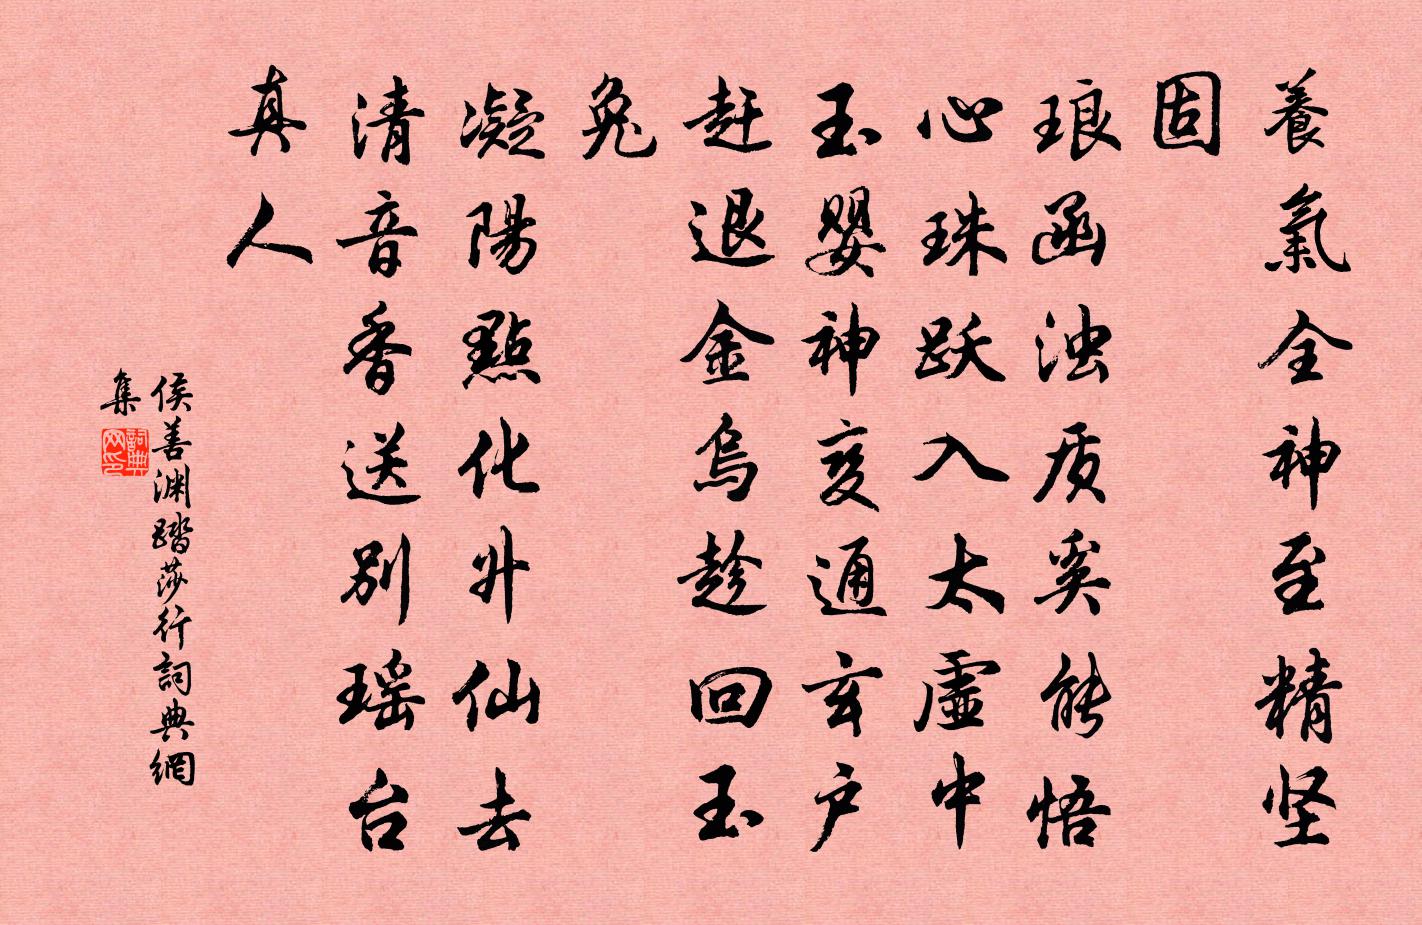 養氣全神至精坚
固
琅函浊质奚能悟
心珠跃入太虚中
玉婴神变通玄户
赶退金烏趁回玉
兔
凝陽點化升仙去
清音香送别瑶台
真人
侯善渊踏莎行詞典網
集
詞典网印